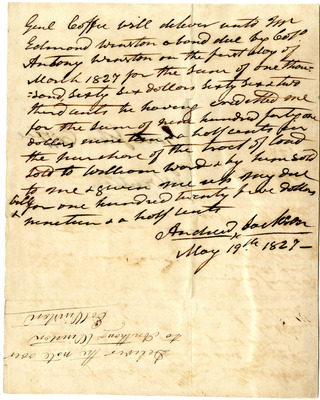 Genl Coffee will deliver unto Mr
Edmond Winston a bond due by Colo
Antony Winston on the first day of
March 1827 for the sum of one thou-
-sand sixty six dollars sixty six & two
third cents he having credited me
for the sum of nine hundred forty one
dollars nine & half cents for
the purchase of the tract of land
sold to William Word & by him sold
to me & given me up my due
bill for one hundred twenty five dollars
& nineteen & a half cents
Andrew Jackson
May 19th 1827-
Deliver the note over
to Anthony Winston
E Winston